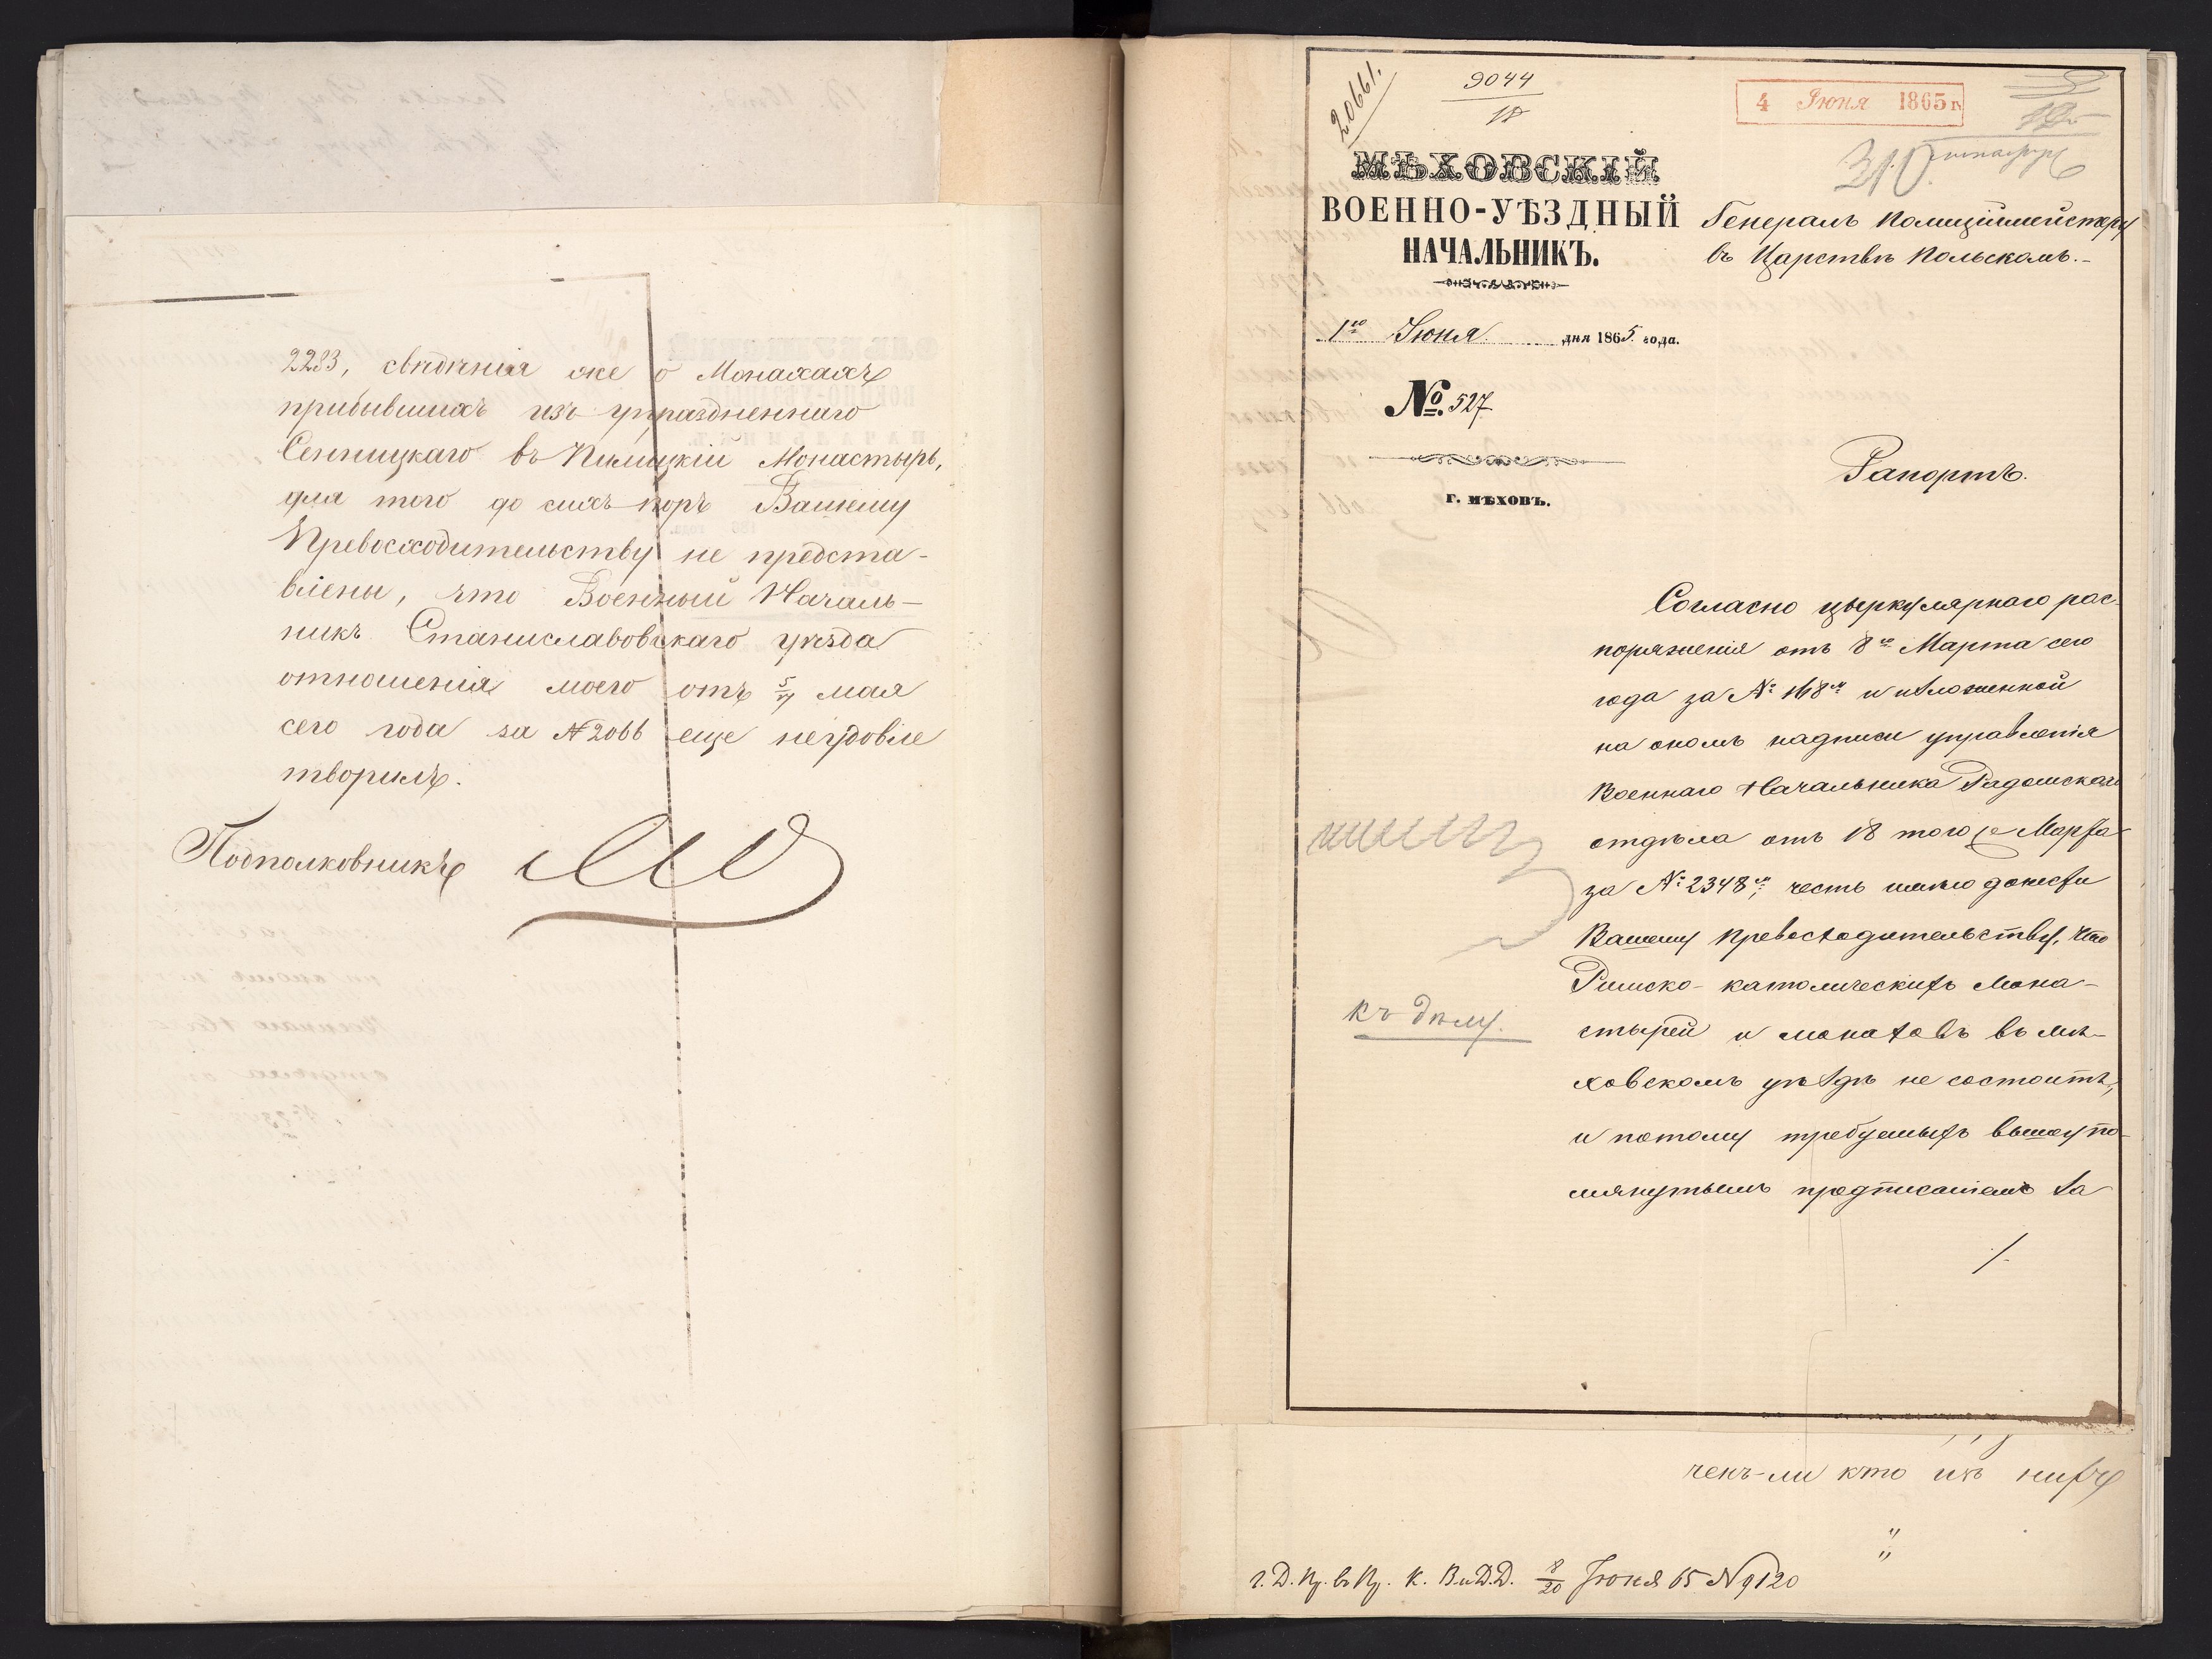 2283, свѣдѣнія же о Монахахъ
прибывшихъ изъ упраздненнаго
Сенницкаго въ Пилицкій Монастырь,
для того до сихъ поръ Вашему
Превосходительству не предста-
влены, что Военный Началь-
никъ Станиславовскаго уѣзда
отношенія моего отъ 5/17 мая
сего года за № 2066 еще неудовле
творилъ.
Подполковникъ
20661.
9044
4 Іюня 1865 г.
310.
МѢХОВСКІЙ
ВОЕННО-УѢЗДНЫЙ
НАЧАЛЬНИКЪ.
1го Іюня дня 1865 года.
№. 527
г. МѢХОВЪ.
Генералъ Полиціймейстеру
въ Царствѣ Польскомъ.-
Рапортъ.
Согласно цыркулярнаго рас-
поряженія отъ 8го Марта сего
года за № 1618 и изложенной
на ономъ надписи управленія
Военнаго Начальника Радомскаго
отдѣла отъ 18 того же Марта
за № 2348, честь имѣю донести
Вашему Превосходительству, что
Римско-католическихъ Мона-
стырей и монаховъ въ Мѣ-
ховскомъ уѣздѣ не состоитъ,
и потому требуемыхъ вышеупо-
мянутымъ предписаніемъ за
/.
къ дѣлу.
ченъ-ли кто изъ нихъ
"
"
г. Д. Пр. въ Пр. К. В. и Д. Д. 8/20 Іюня 65 № 9120